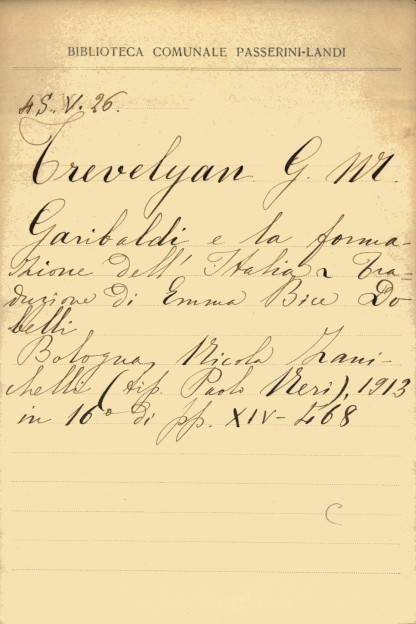 BIBLIOTECA COMUNALE PASSERINI-LANDI
4S. V. 26.
Trevelyan G. M.
Garibaldi e la forma-
zione dell' Italia Tra-
duzione di Emma Bice Do
belli
Bologna, Nicola Zani-
chelli (tip. Paolo Neri), 1913
in 16° di pp. XIV-468
C